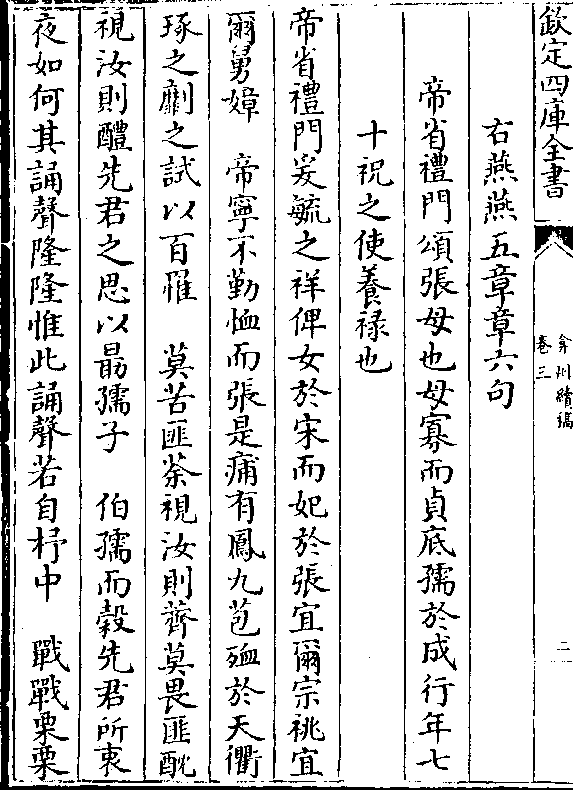 欽定四庫全書
弇州續稿
卷三
二
右燕燕五章章六句
帝省禮門頌張母也母寡而貞底孺於成行年七
十祝之使養祿也
帝省禮門爰毓之祥俾女於宋而妃於張宜爾宗祧宜
爾舅嫜　帝寧不勤恤而張是痡有鳳九苞殈於天衢
琢之劘之試以百罹　莫苦匪荼視汝則薺莫畏匪酖
視汝則醴先君之思以勗孺子　伯孺而穀先君所衷
夜如何其誦聲隆隆惟此誦聲若自杼中　戰戰栗栗